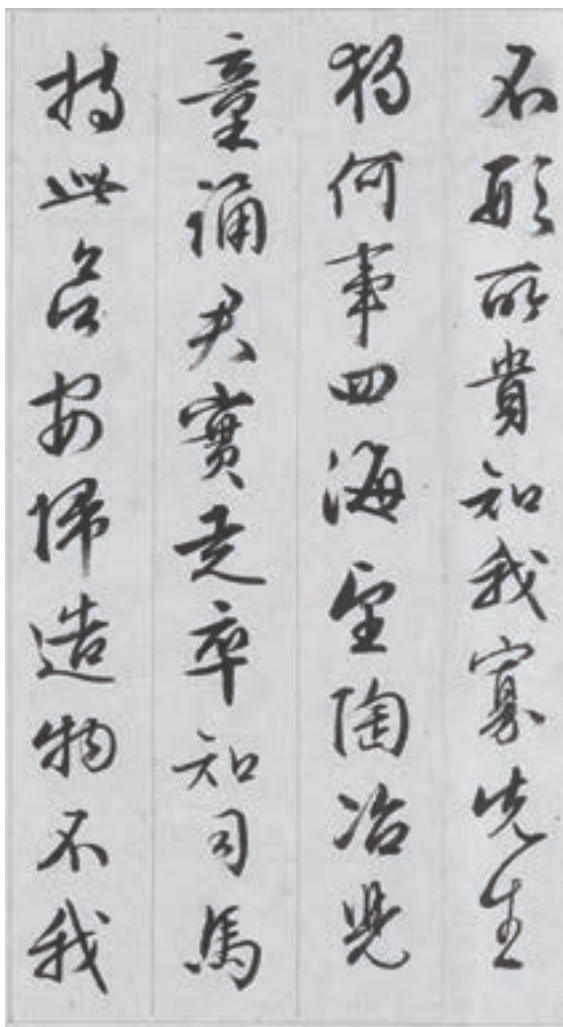 不形所貴知我寡先生
獨何事四海望陶冶兒
童誦君實走卒知司馬
持此欲安歸造物不我